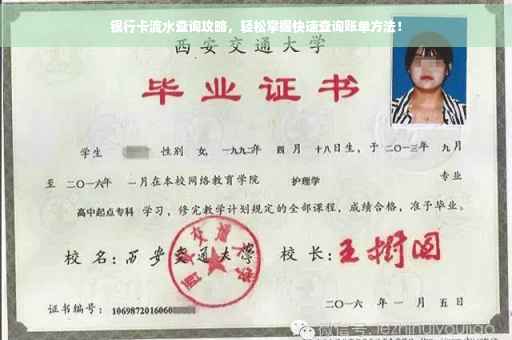 银行卡流水查询攻略，轻松掌握快速查询账单方法！
西安交通大学
毕业证书
学生 性别 女，一九九二年 四 月 十八日生，于 二〇一三年 九月
至 二〇一六年 一月在本校网络教育学院 护理学 专业
高中起点专科 学习，修完教学计划规定的全部课程，成绩合格，准予毕业。
校 名：西安交通大学 校 长：王树国
西安交通大学
证书编号：1069872016060
二〇一六 年 一 月 五 日
微信号: jezhinuiyoujiao